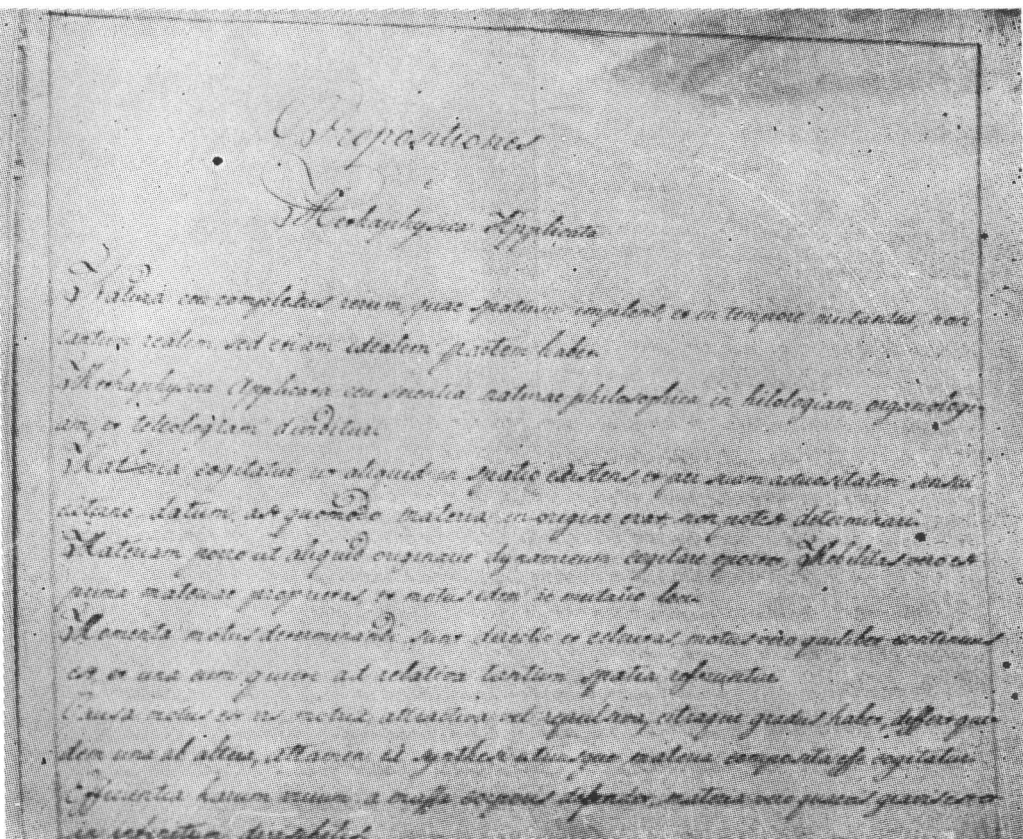 Propositiones
Methaphysica Applicata
Natura ceu complexus rerum, quae spatium implent, et in tempore mutantur, non
tantum realem, sed etiam idealem partem habet.
Methaphysica Applicata ceu scientia naturae philosophica in hilologiam, organologi-
am, et teleologiam dividitur.
Materia cogitatur ut aliquid in spatio existens, et per suam actuositatem sensui
externo datum, ast quomodo materia in origine erat, non potest determinari.
Materiam porro ut aliquid originarie dynamicum cogitare oportet, Mobilitas vero est
prima materiae proprietas, et motus idem ac mutatio loci.
Momenta motus determinandi sunt directio et celeritas, motus vero quilibet continuus
est, et una cum quiete ad relativa tantum spatia referuntur.
Causa motus est vis motrix attractiva vel repulsiva, utraque gradus habet, differt qui-
dem una ab altera, attamen ex synthesi utriusque materia composita esse cogitatur.
Efficientia harum virium a massa corporis dependet, materia vero quaevis gravis est et
in infinitum